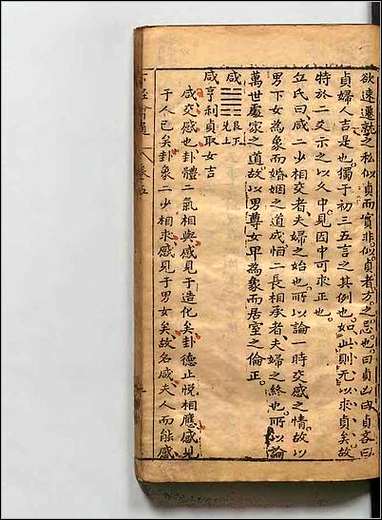 欲速遷就之私似貞而實非似貞者方之忌也曰貞凶曰貞吝曰
貞婦人吉是也獨于初三五言之其例也如此則无以求貞矣故
特於二爻示之以久中見因中可求正也
丘氏曰咸二少相交者夫婦之始也所以論一時交感之情故以
男下女為象而婚姻之道成恒二長相承者夫婦之終也所以論
萬世處家之道故以男尊女卑為象而居室之倫正
咸 艮下 兌上
咸亨利貞取女吉
咸交感也卦體二氣相與感見于造化矣卦德止悅相應感見
于人已矣卦象二少相求感見于男女矣故名咸夫人而能感
卷五